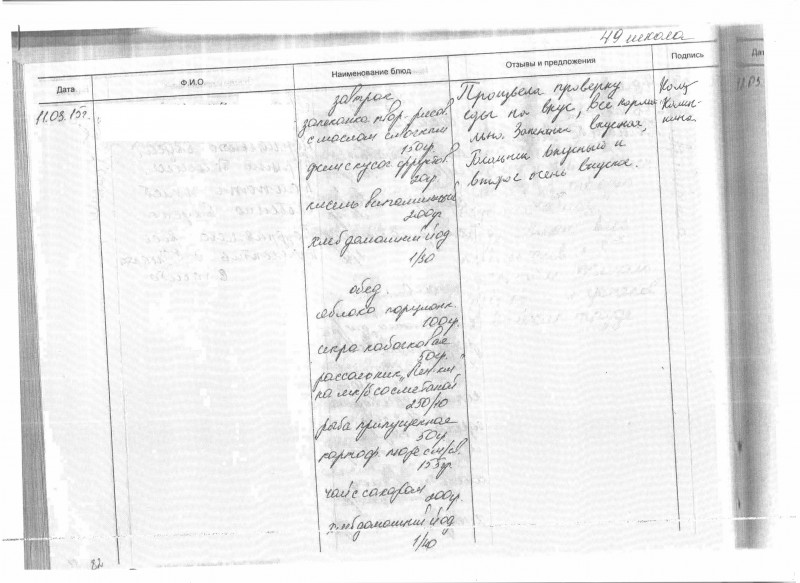 49 школа
Дата Ф.И.О. Наименование блюд Отзывы и предложения Подпись
11.03.15г.
завтрак
запеканка твор-рисов.
с маслом сливочным
150гр.
джем скусос фруктов.
20гр.
кисель витаминный
200гр.
хлеб домашний йод
1/30
обед.
яблоко порционн.
100гр.
икра кабачковая
50гр.
рассольник „Лен" км
на мк/б со сметаной
250/10
рыба припущенная
50гр.
картоф. пюре см/сл.
155гр.
чай с сахаром
200гр.
хлеб домашний йод
1/40
Произвела проверку
еды на вкус, все нормал
льно. Запеканка вкусная,
вкусный и
второе очень вкусное.
82